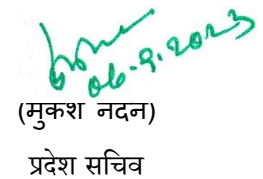 06.9.2023
(मुकश नदन)
प्रदेश सचिव